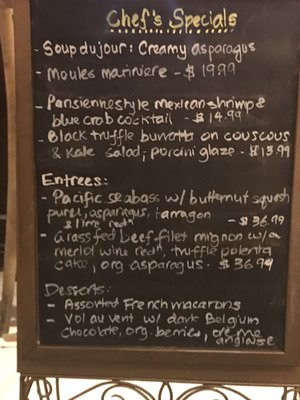 Chef's Specials
- Soup du jour: Creamy asparagus
- Moules mariniere - $19.99
- Parisienne style mexican shrimp &
blue crob cocktail - $14.99
- Black truffle burratta on couscous
& Kale salad; porcini glaze - $13.99
Entrees:
- Pacific seabass w/ butternut squash
puree, asparagus, tarragon
& lime red" - $36.99
- Grass fed beef filet mignon w/ a
merlot wine red", truffle polenta
cake, org asparagus - $36.99
Desserts:
- Assorted French macarons
- Vol au vent w/ dark Belgium
chocolate, org. berries, creme
anglaise